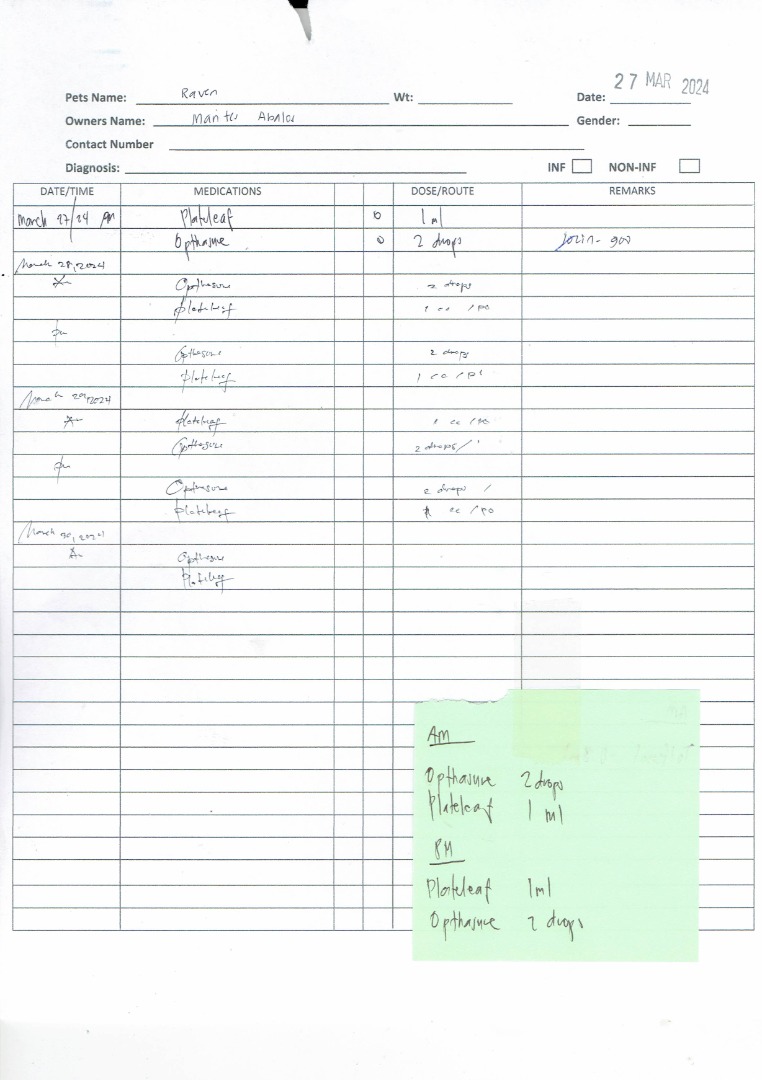 27 MAR 2024
Pets Name: Raven Wt: Date:
Owners Name: Gender:
Contact Number
Diagnosis: INF NON-INF
DATE/TIME MEDICATIONS DOSE/ROUTE REMARKS
March 27/24 Plateleaf 1 ml
Opthasure 2 drops
March 28, 2024
Am Opthasure 2 drops
Plateleaf 1 cc / po
pm
Opthasure 2 drops
Plateleaf 1 cc / po
March 29, 2024
Am Plateleaf 1 cc / po
Opthasure 2 drops /
pm
Opthasure 2 drops /
Plateleaf 1 cc / po
March 30, 2024
Am Opthasure
Plateleaf
AM
Opthasure 2 drops
Plateleaf 1 ml
PM
Plateleaf 1 ml
Opthasure 2 drops